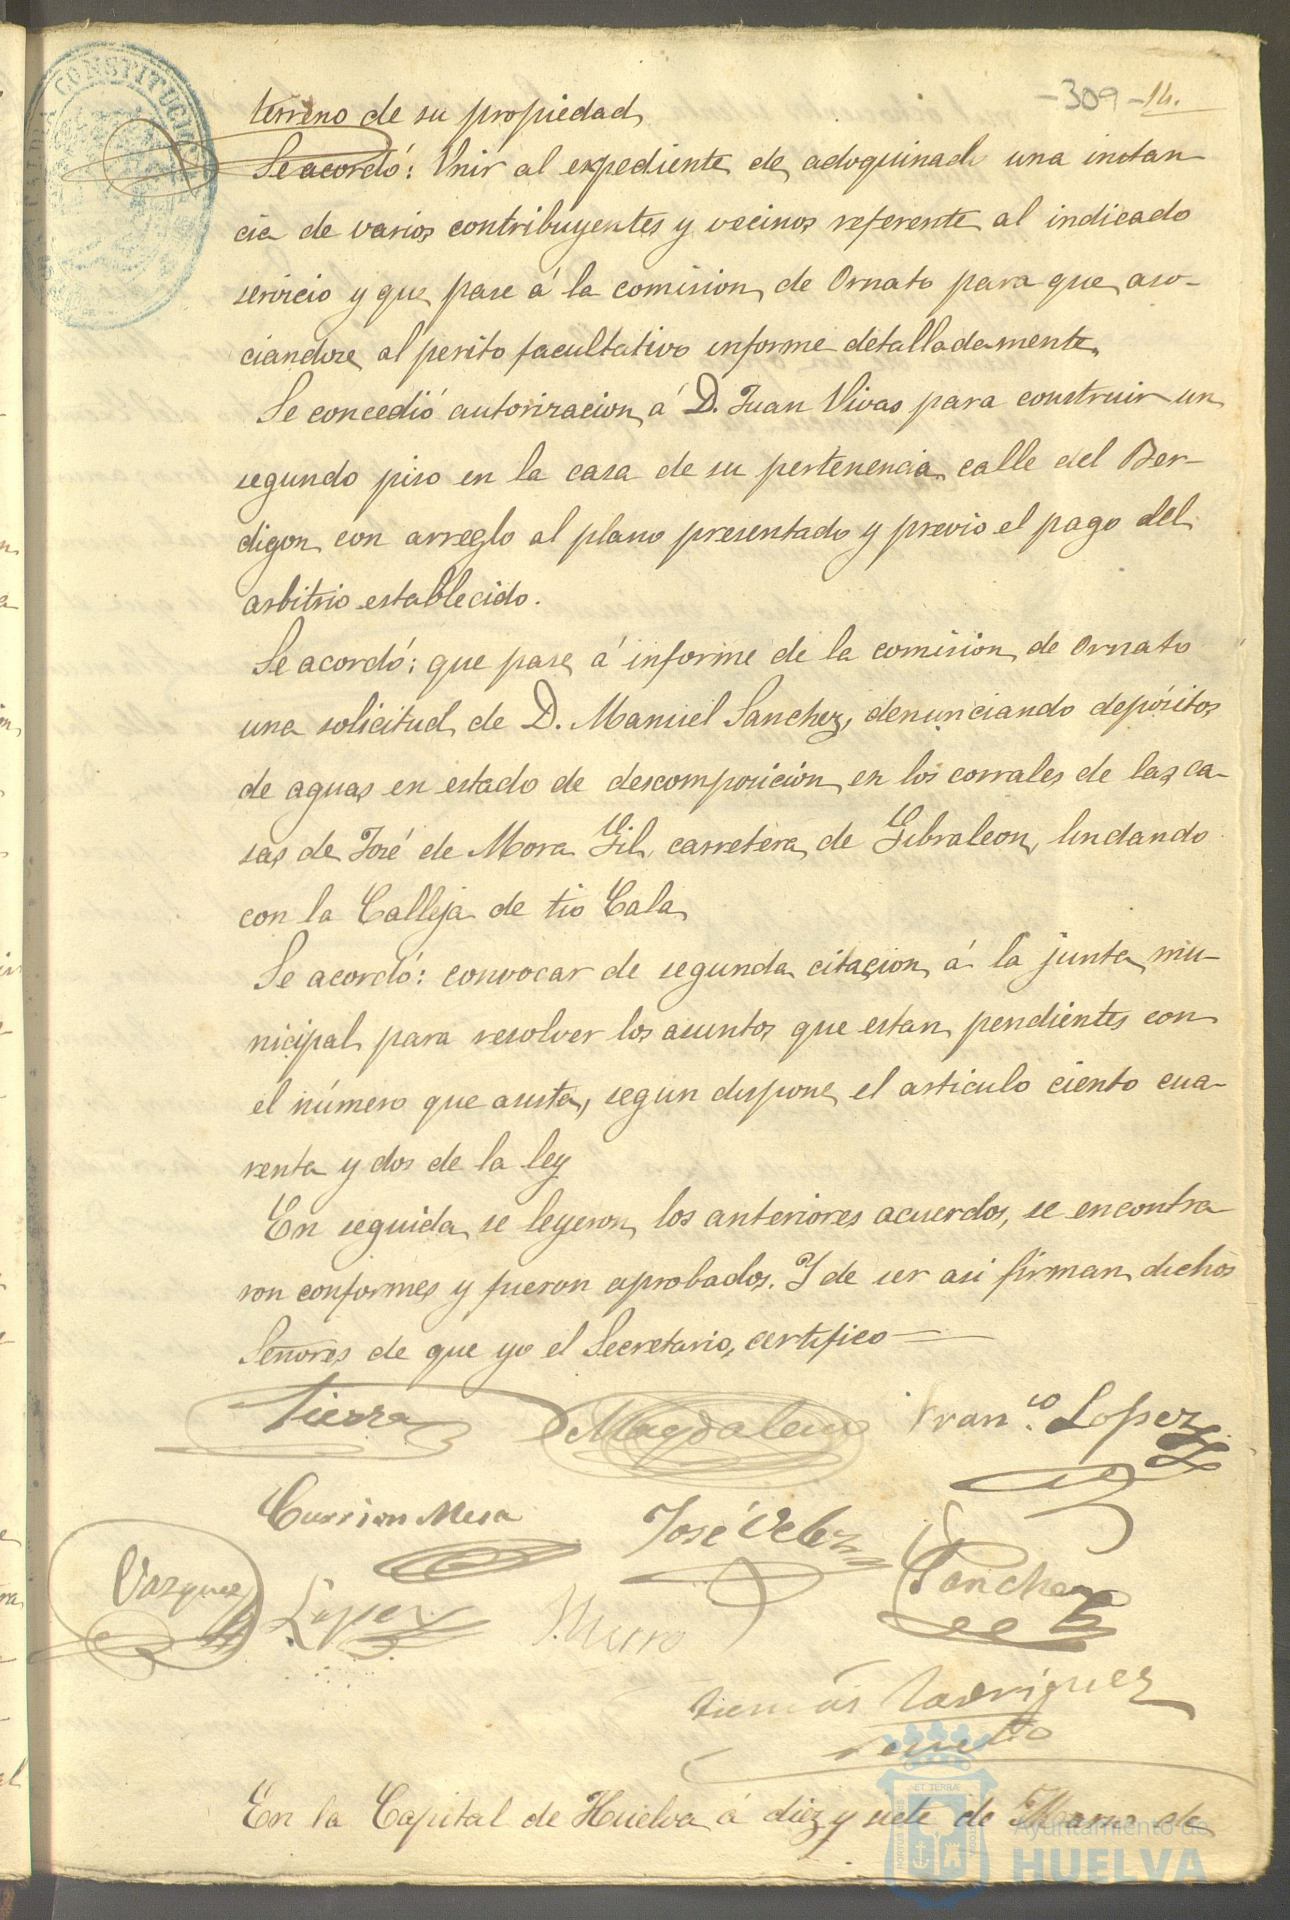 -309- 14.
terreno de su propiedad
Se acordó: Unir al expediente de adoquinado una instan
cia de varios contribuyentes y vecinos referente al indicado
servicio y que pase á la comision de Ornato para que aso-
ciandose al perito facultativo informe detalladamente.
Se concedió autorizacion á D. Juan Vivas para construir un
segundo piso en la casa de su pertenencia calle del Ber-
digon con arreglo al plano presentado y previo el pago del
arbitrio establecido.
Se acordó: que pase á informe de la comision de Ornato
una solicitud de D. Manuel Sanchez, denunciando depósitos
de aguas en estado de descomposicion en los corrales de las ca-
sas de José de Mora Gil, carretera de Gibraleon, lindando
con la Calleja de tio Cala
Se acordó: convocar de segunda citacion á la junta mu-
nicipal para resolver los asuntos que estan pendientes con
el número que asista, segun dispone el articulo ciento cua-
renta y dos de la ley
En seguida se leyeron los anteriores acuerdos, se encontra
ron conformes y fueron aprobados. Y de ser asi firman dichos
Señores de que yo el Secretario, certifico
Tierra Magdalena Fran.co Lopez
Carrion Mesa José Velez Sanchez
Vazquez Lopez
Rodriguez
En la Capital de Huelva á diez y siete de Marzo de
CONSTITUCIONAL
Ayuntamiento de
HUELVA